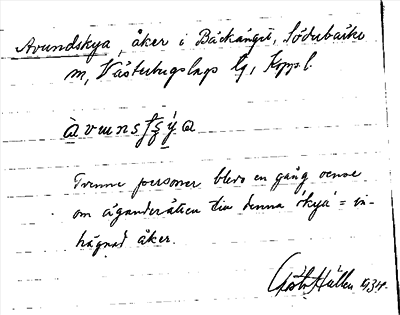 Avundskya, åker i Bäckänget, Söderbärke
sn, Västerbergslags tg, Kopp l.
Trenne personer blevo en gång oense
om äganderätten till denna 'kya' = in-
hägnad åker.
Gösta Hallén 1934.